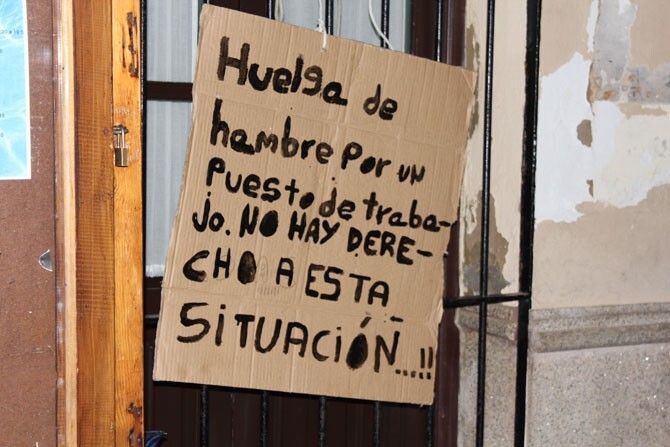 Huelga de
hambre por un
puesto de traba-
jo. NO HAY DERE-
CHO A ESTA
SITUACIÓN...!!